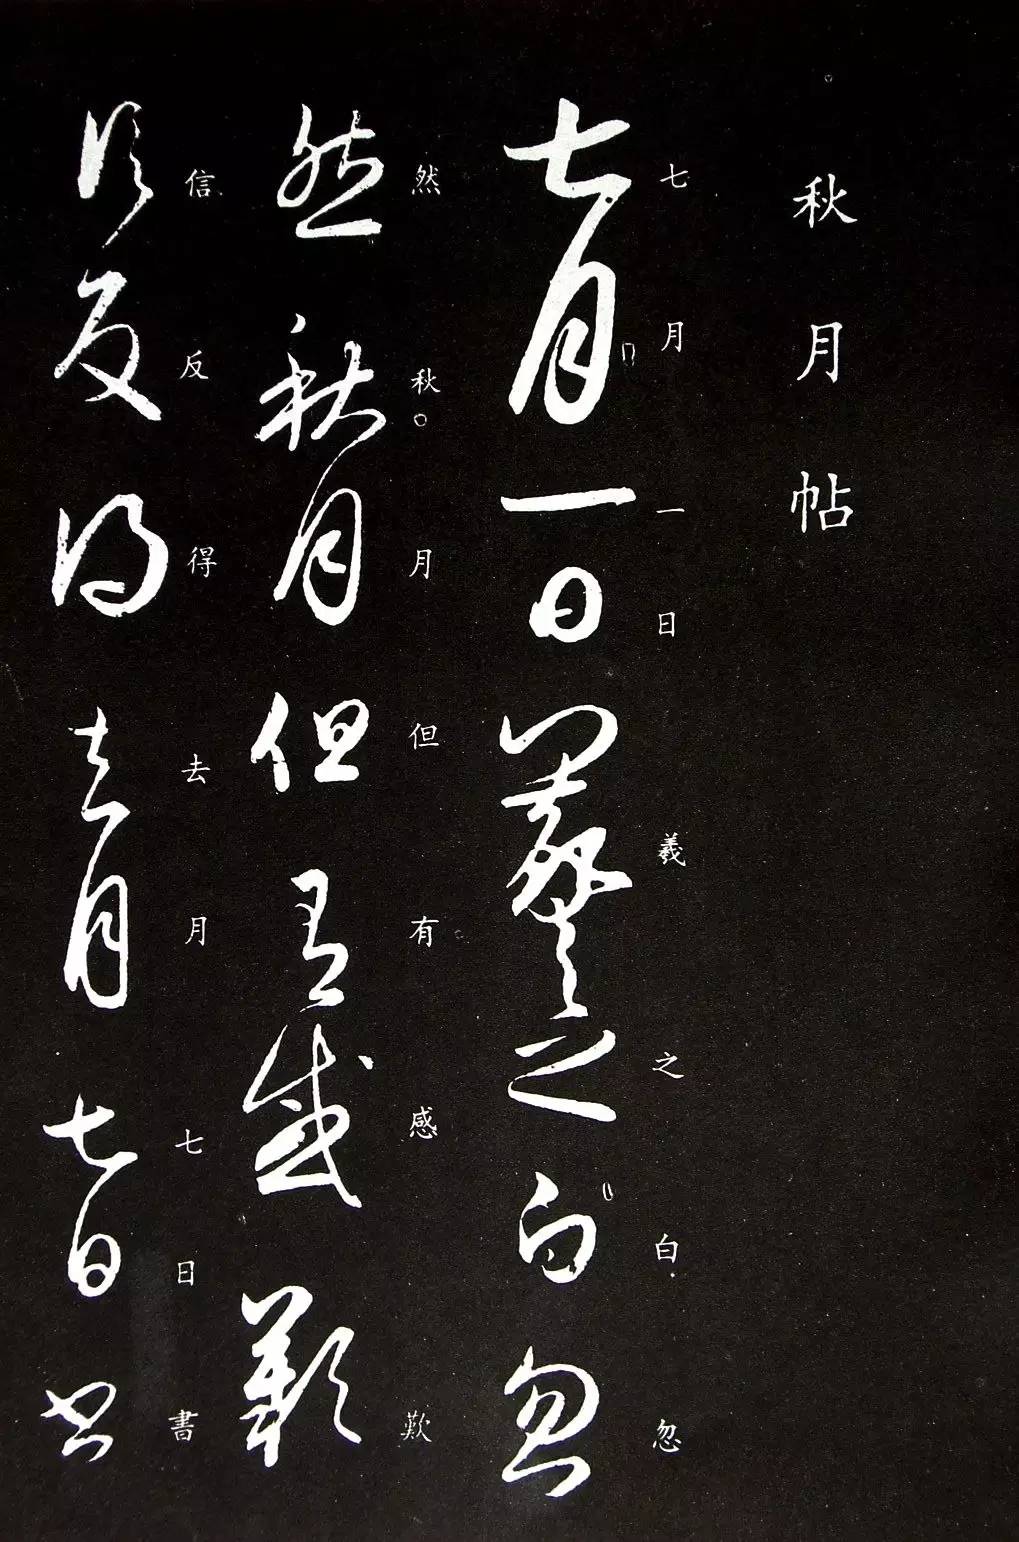 秋月帖
七月一日羲之白忽
七月一日羲之白忽
然秋月但有感歎
然秋月但有感歎
信反得去月七日書
信反得去月七日書